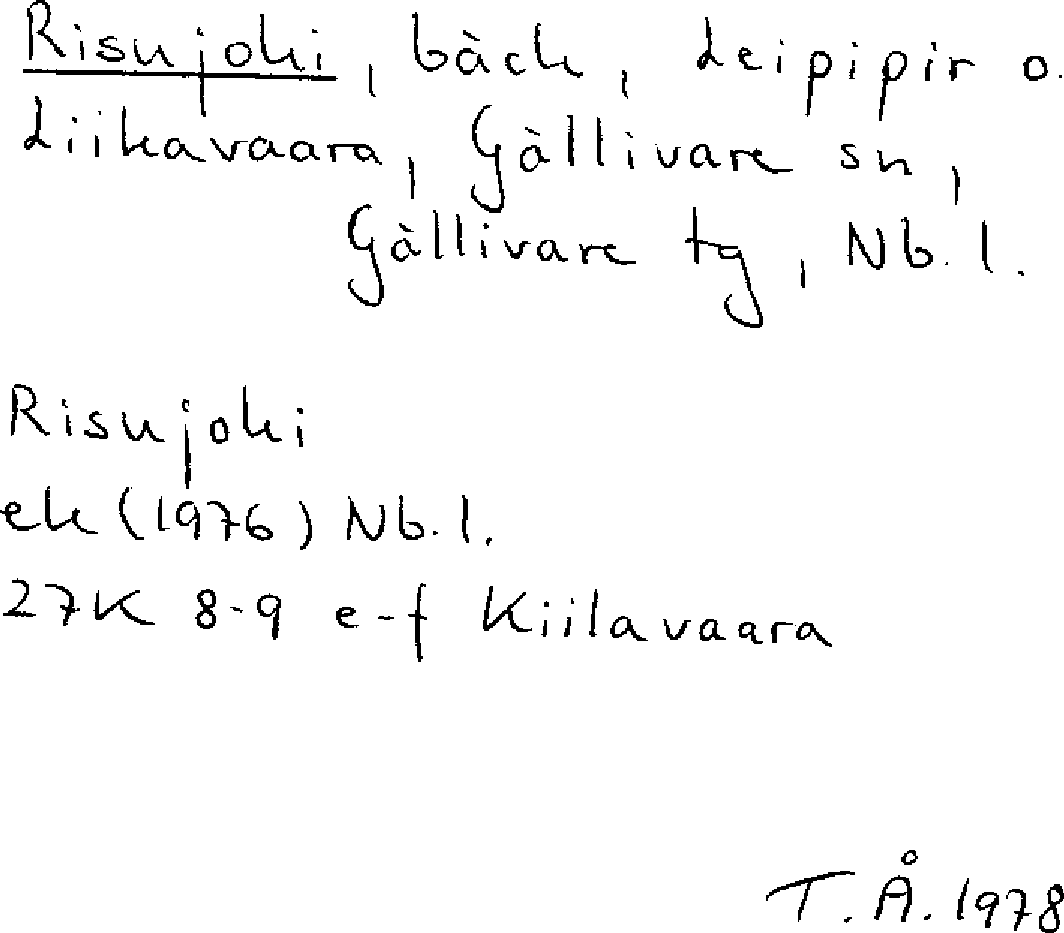 Risujoki, bäck, Leipipir o.
Liikavaara, Gällivare sn,
Gällivare tg, Nb. l.
Risujoki
ek (1976) Nb. l.
27K 8-9 e-f Kiilavaara
T. Å. 1978